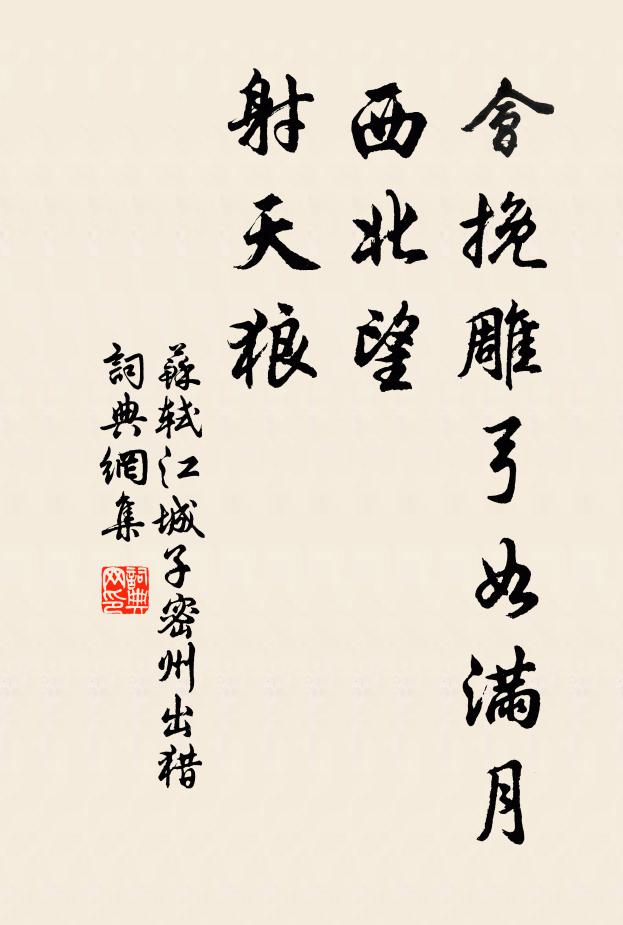 會挽雕弓如滿月
西北望
射天狼
蘇軾江城子密州出猎
詞典網集
詞典
网印